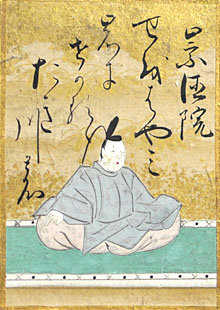 崇徳院
せをはやみ
岩に
せかるゝ
たき川
の